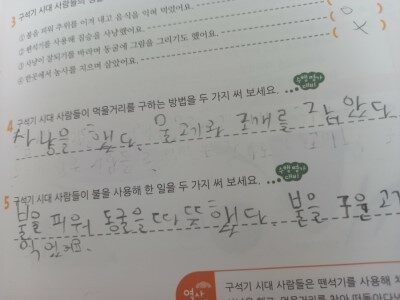 3 구석기 시대 사람들의
① 불을 피워 추위를 이겨 내고 음식을 익혀 먹었어요.
② 뗀석기를 사용해 짐승을 사냥했어요.
③ 사냥이 잘되기를 바라며 동굴에 그림을 그리기도 했어요.
④ 한곳에서 농사를 지으며 살았어요.
수행 평가
대비
4 구석기 시대 사람들이 먹을거리를 구하는 방법을 두 가지 써 보세요.
사냥을 했다. 물고기와 조개를 잡았다
수행 평가
대비
5 구석기 시대 사람들이 불을 사용해 한 일을 두 가지 써 보세요.
불을 피워 동굴을 따뜻했다. 불을
역사
구석기 시대 사람들은 뗀석기를 사용해
먹을거리를 찾아